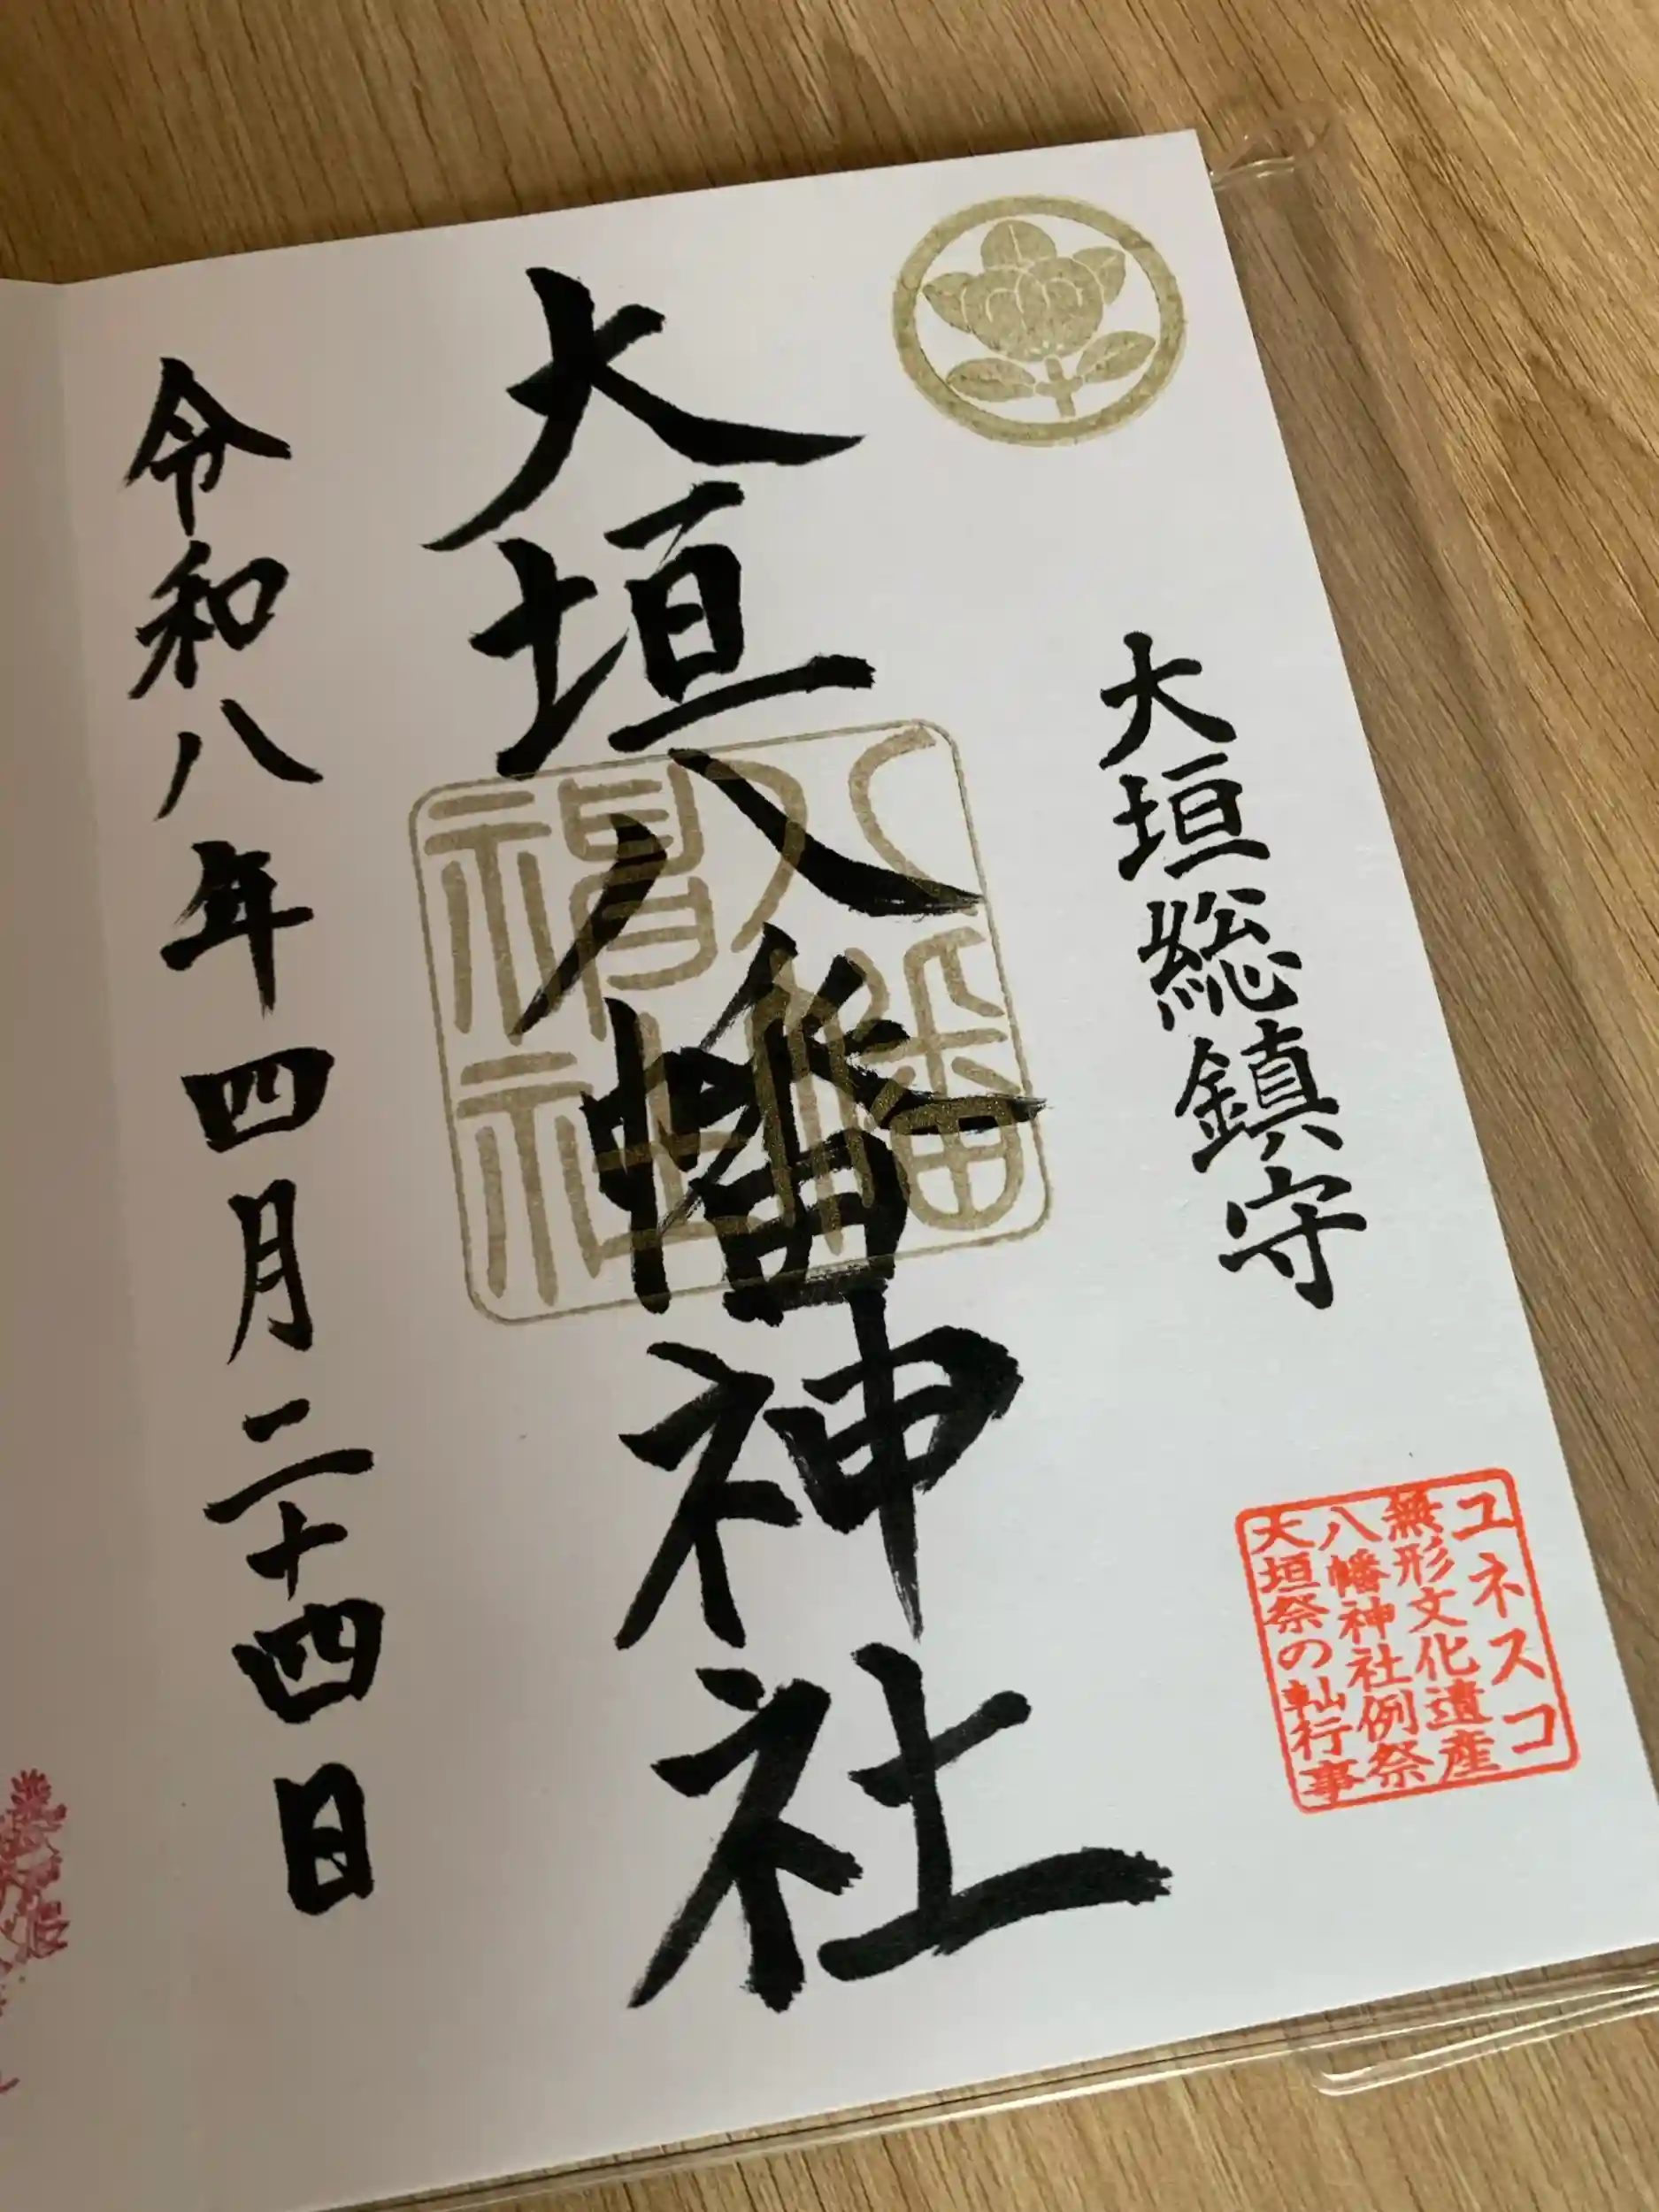 大垣総鎮守
ユネスコ
無形文化遺産
八幡神社例祭
大垣祭の軕行事
大垣八幡神社
八幡
神社
令和八年四月二十四日